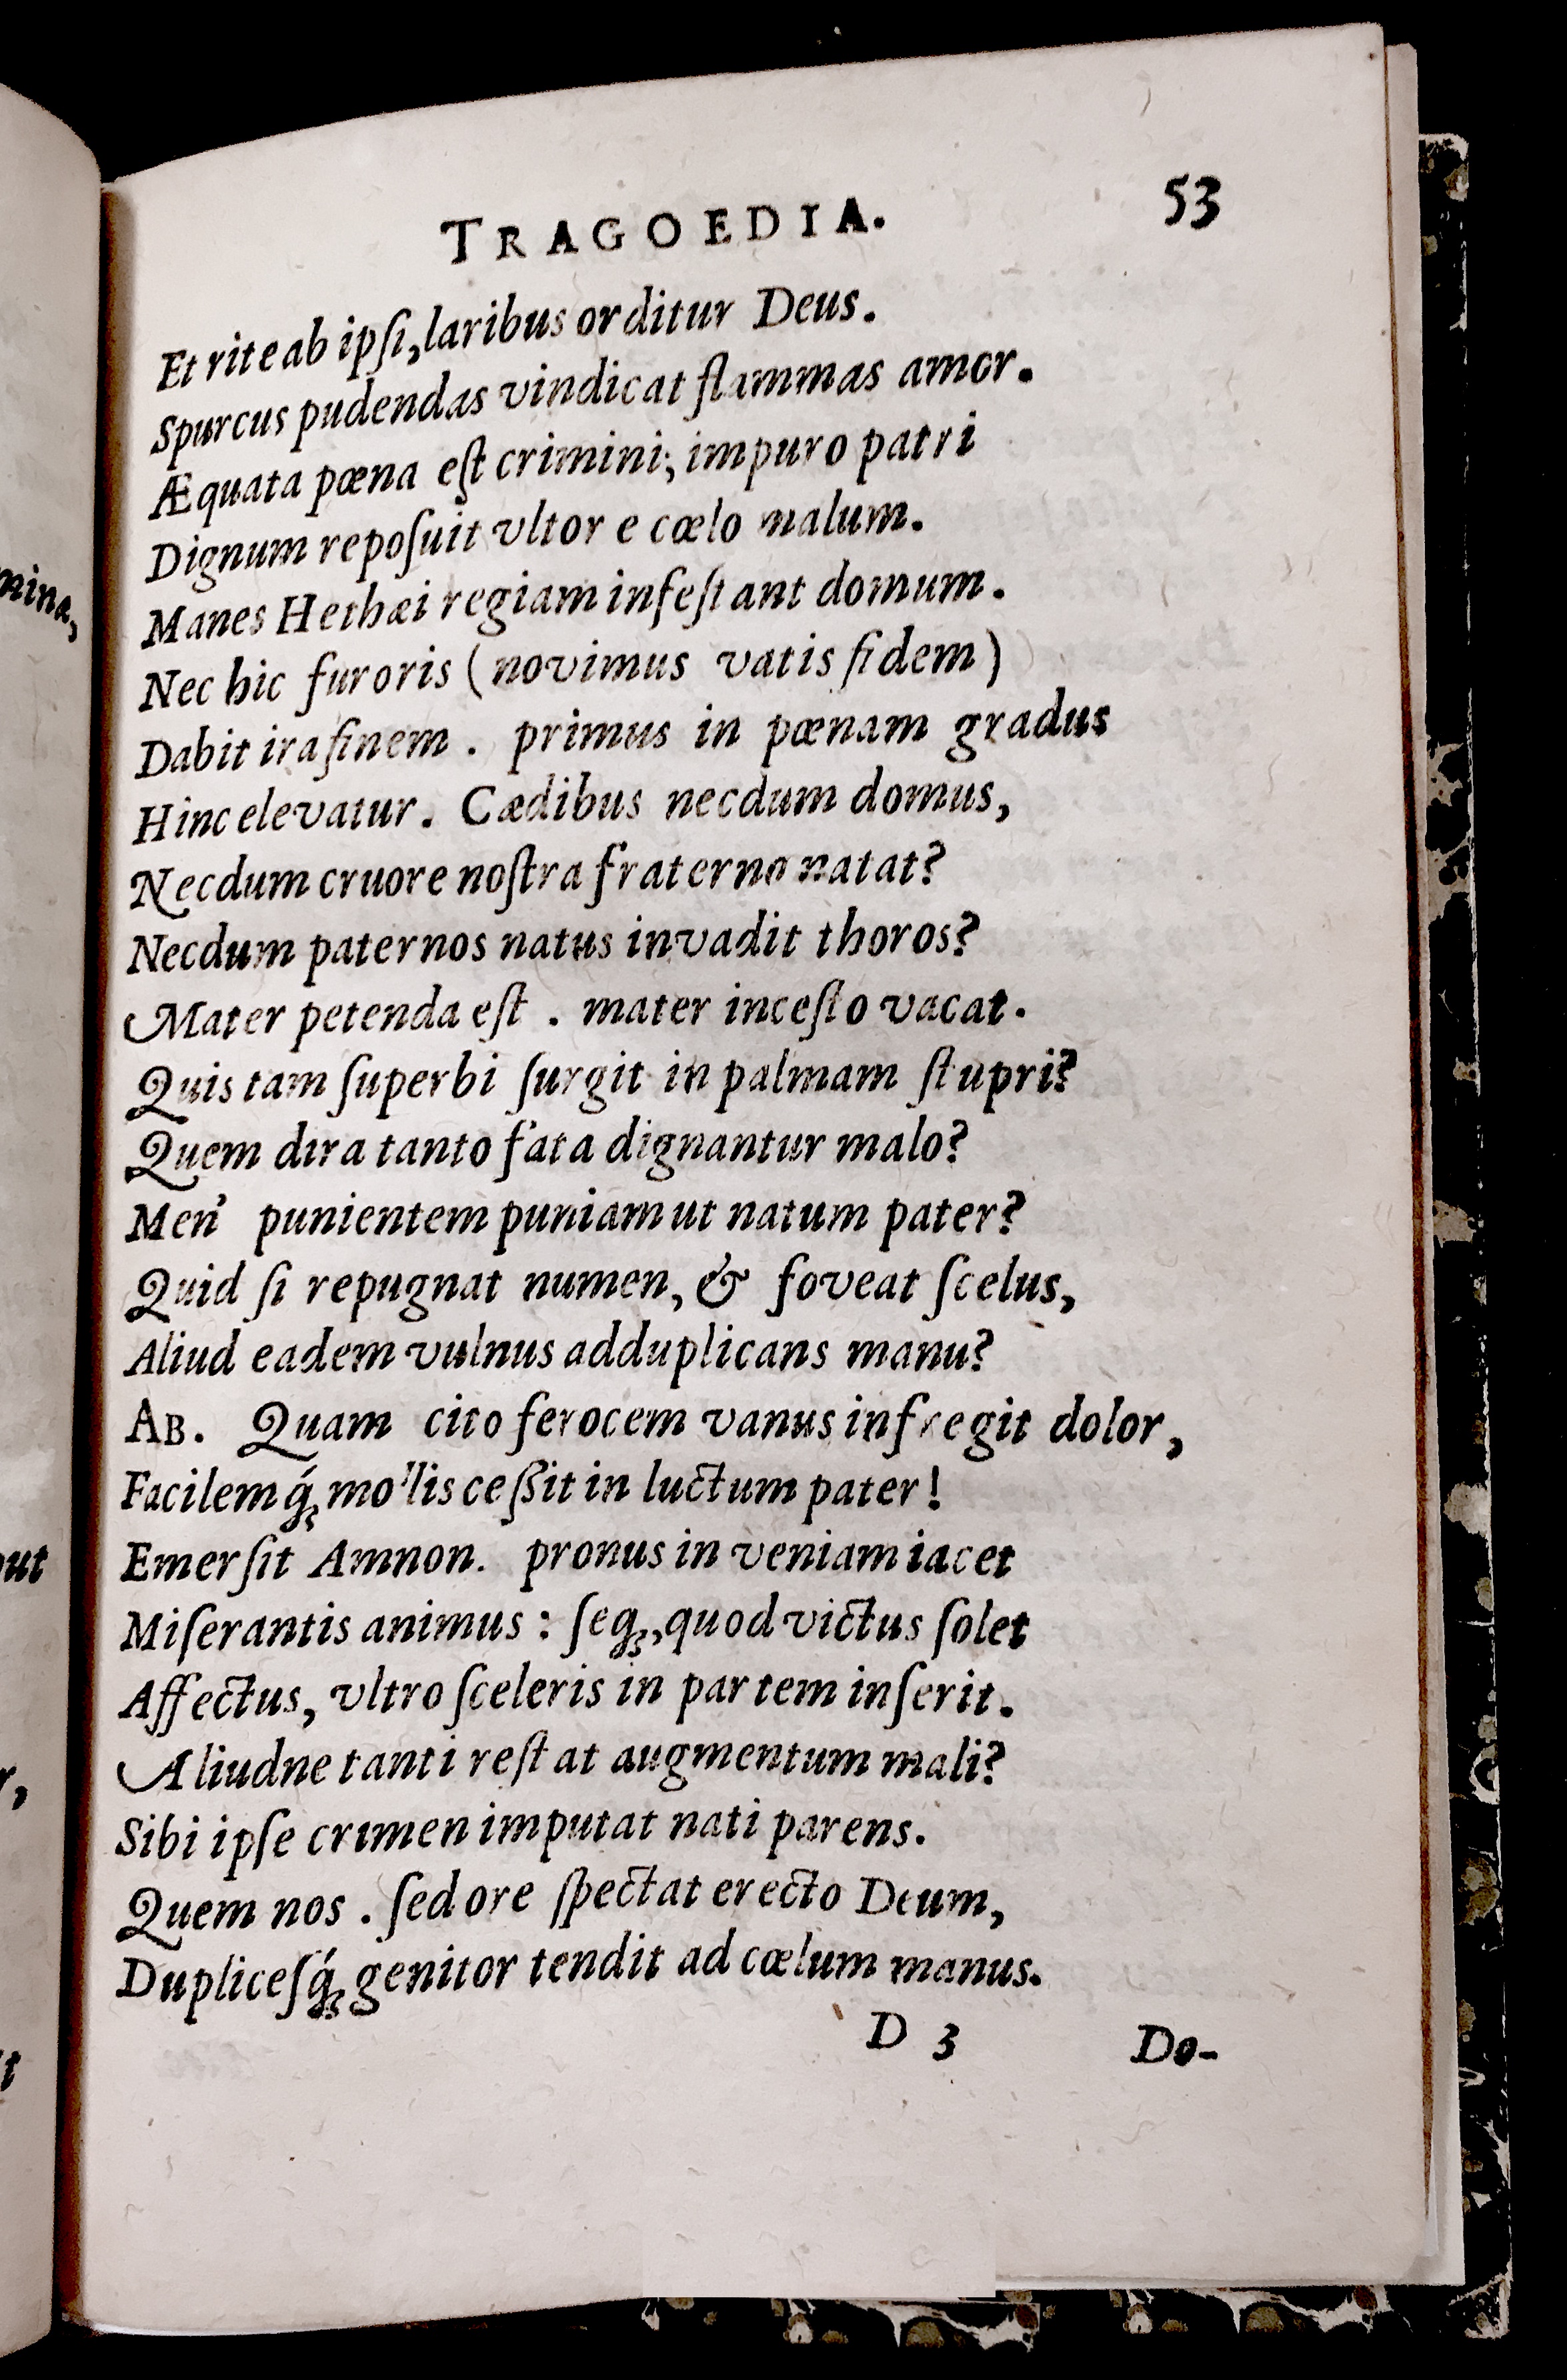 TRAGOEDIA. 53
Et rite ab ipſi, laribus orditur Deus.
Spurcus pudendas vindicat flammas amor.
Æquata pœna eſt crimini; impuro patri
Dignum repoſuit vltor e cœlo malum.
Manes Hethæi regiam infeſtant domum.
Nec hic furoris (novimus vatis fidem)
Dabit ira finem. primus in pœnam gradus
Hinc elevatur. Cædibus necdum domus,
Necdum cruore noſtra fraterno natat?
Necdum paternos natus invadit thoros?
Mater petenda eſt. mater inceſto vacat.
Quis tam ſuperbi ſurgit in palmam ſtupri?
Quem dira tanto fata dignantur malo?
Men' punientem puniam ut natum pater?
Quid ſi repugnat numen, & foveat ſcelus,
Aliud eadem vulnus adduplicans manu?
AB. Quam cito ferocem vanus infregit dolor,
Facilemq́; mollis ceſſit in luctum pater!
Emerſit Amnon. pronus in veniam iacet
Miſerantis animus: ſeq;, quod victus ſolet
Affectus, vltro ſceleris in partem inſerit.
Aliudne tanti reſtat augmentum mali?
Sibi ipſe crimen imputat nati parens.
Quem nos. ſed ore ſpectat erecto Deum,
Dupliceſq́; genitor tendit ad cœlum manus.
D 3 Do-
mina,
out
r,
t